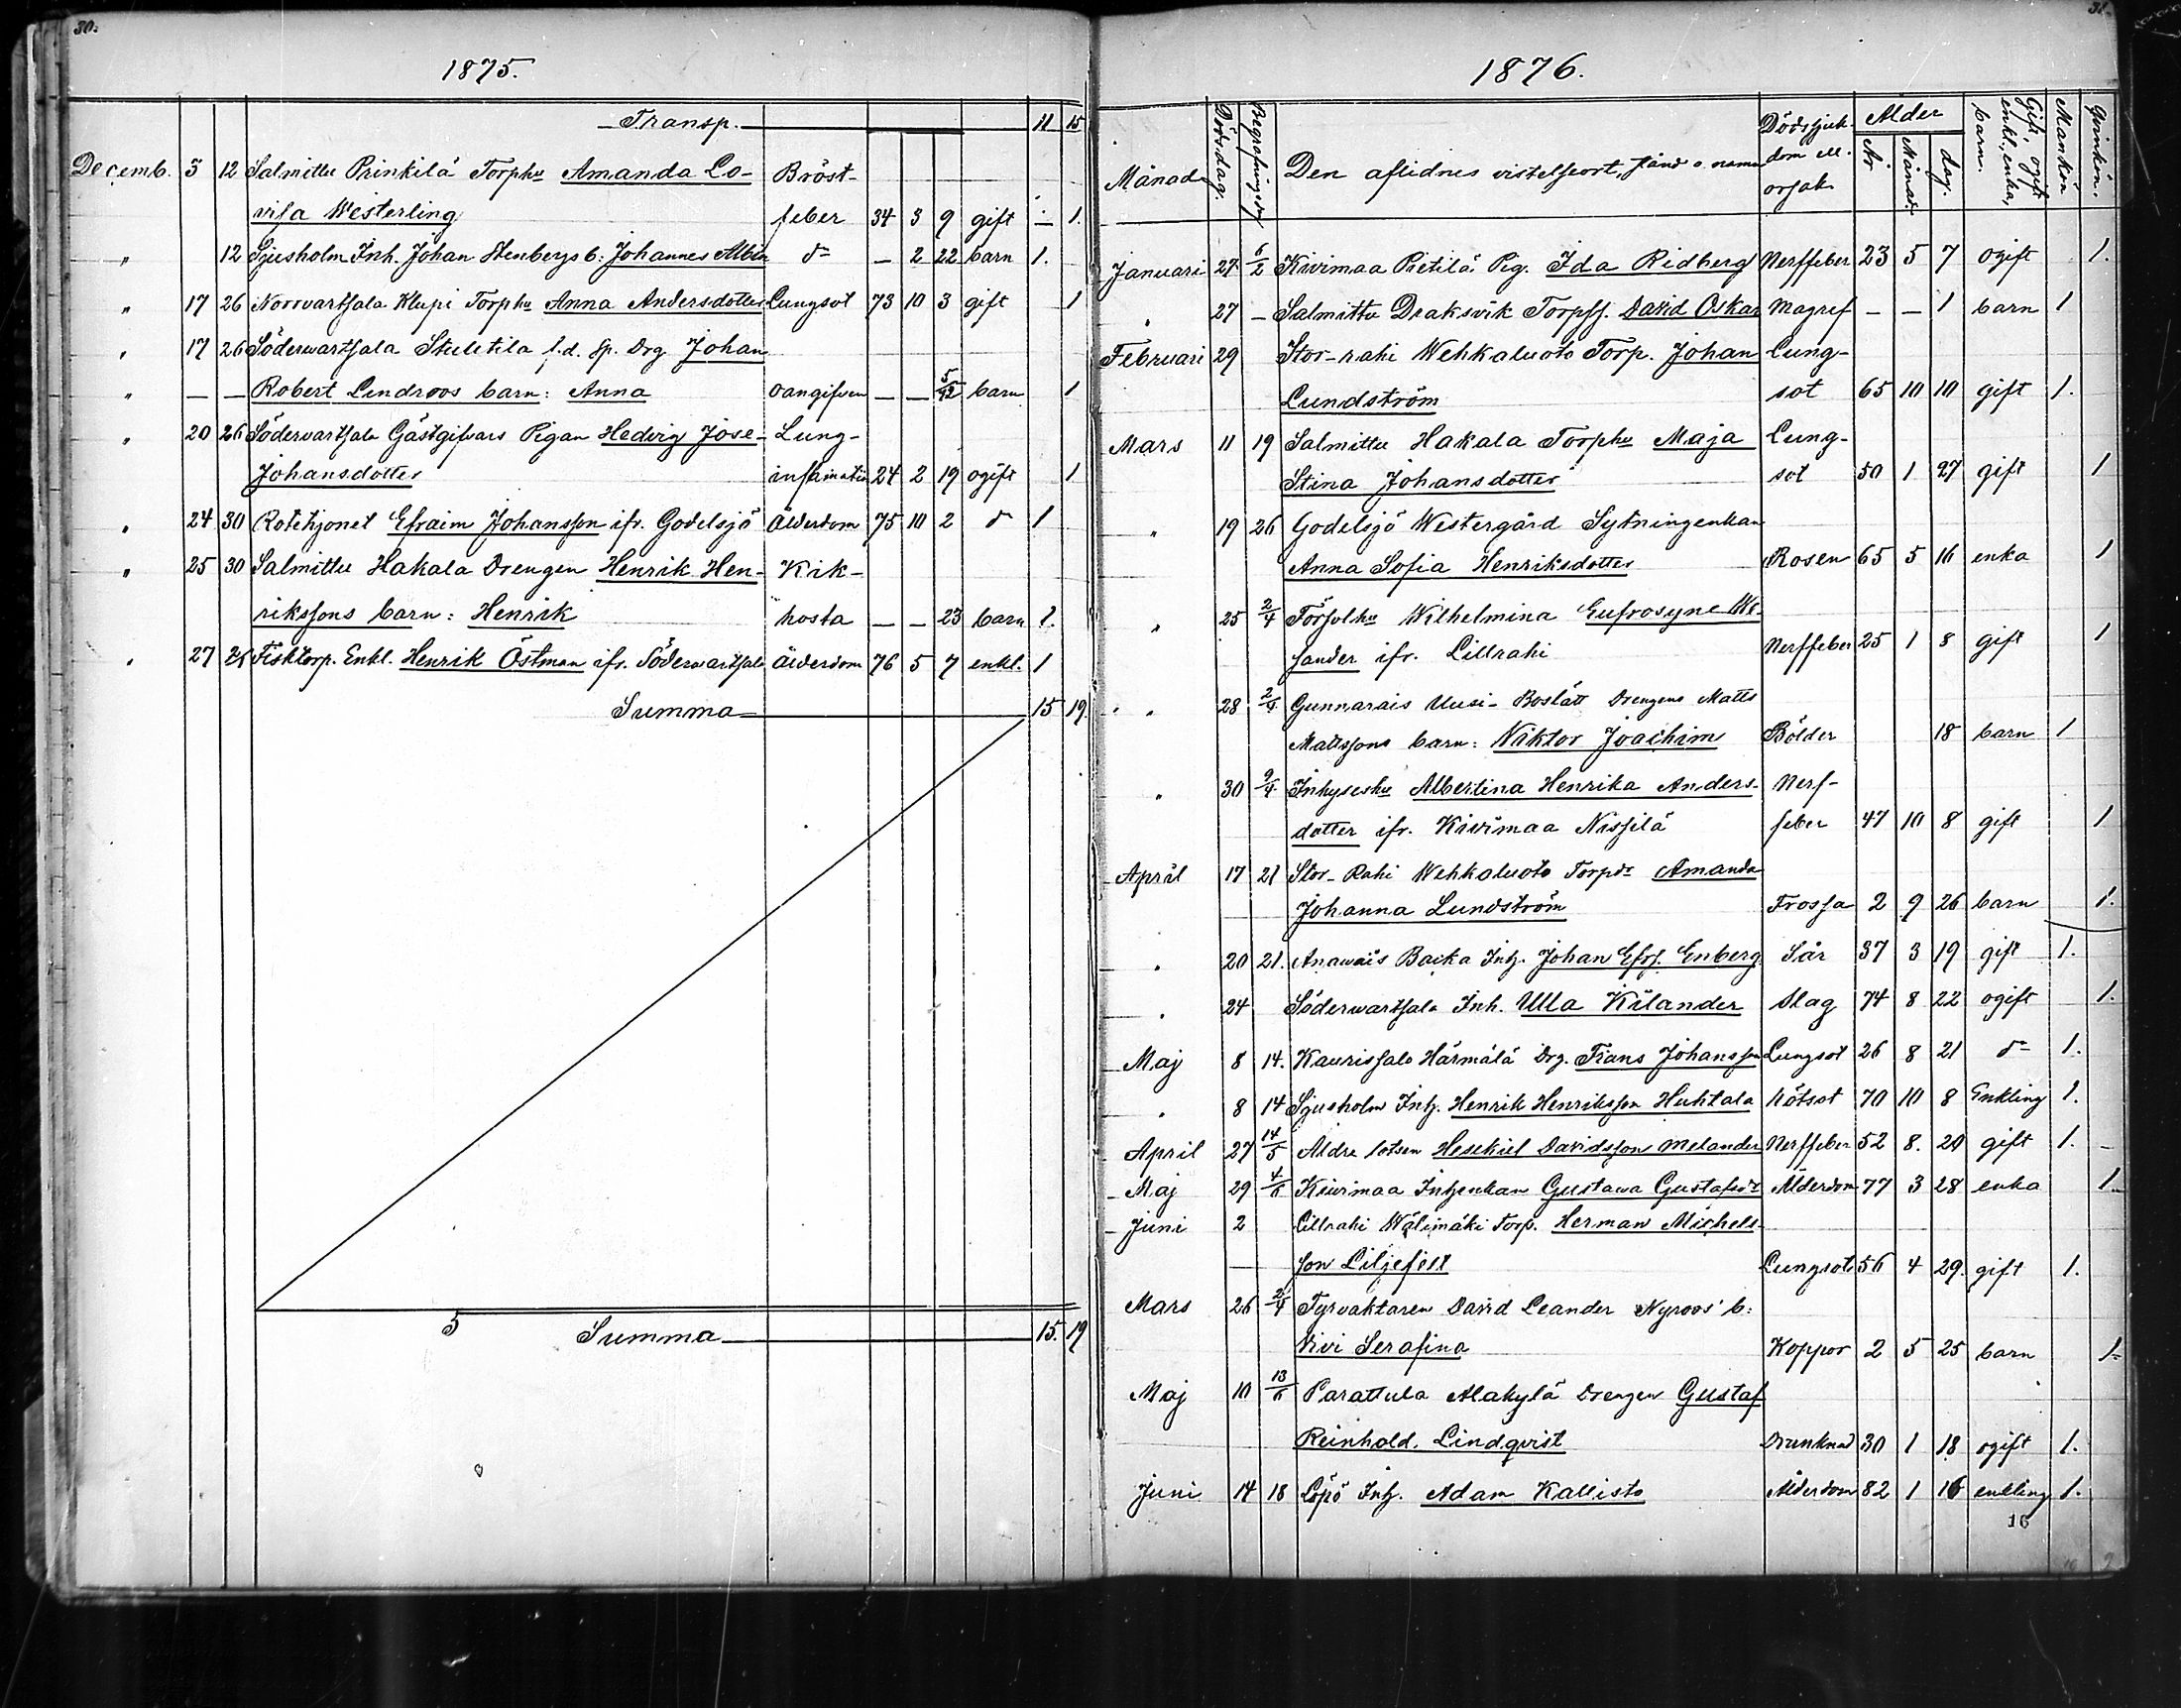 30.
1875.
Transp. 11 15
Decemb. 5 12 Salmittu Prinkilä Torphu Amanda Lo- Bröst-
visa Westerling feber 34 3 9 gift – 1.
" 12 Sjusholm Inh. Johan Stenbergs b: Johannes Albin do – 2 22 barn 1.
" 17 26 Norrvartsala Klupi Torphu Anna Andersdotter Lungsot 73 10 3 gift 1
" 17 26 Söderwartsala Stuletila f.d. Sp. Drg Johan
" – – Robert Lindroos barn: Anna oangifven – – 5/12 barn 1
" 20 26 Södervartsala Gästgifvars Pigan Hedvig Jose- Lung-
Johansdotter inflamation 24 2 19 ogift 1
" 24 30 Rotehjonet Efraim Johansson ifr. Godelsjö Ålderdom 75 10 2 do 1
" 25 30 Salmittu Hakala Drengen Henrik Hen- Kik-
rikssons barn: Henrik hosta – – 23 barn 1.
" 27 26 Fisktorp. Enkl. Henrik Östman ifr. Söderwartsala Ålderdom 76 5 7 enkl. 1
Summa 15 19.
5 Summa 15. 19
31.
1876.
Månad Dödsdag. Begrafningsdag Den aflidnes vistelseort, stånd o. namn Dödssjuk-dom ell. orsak Ålder År Månad. dag. Gift, ogift enkl., enka, barn. Mankön Qvinkön.
Januari 27 6/2 Kivimaa Pietilä Pig. Ida Ridberg Nerffeber 23 5 7 ogift 1.
" 27 – Salmittu Draksvik Torpss. David Oskar Magref – – 1 barn 1
Februari 29 Stor-rahi Wehkaluoto Torp. Johan Lung-
Lundström sot 65 10 10 gift 1.
Mars 11 19 Salmittu Hakala Torphu Maja Lung-
Stina Johansdotter sot 50 1 27 gift 1
" 19 26 Godelsjö Westergård Sytningenkan
Anna Sofia Henriksdotter Rosen 65 5 16 enka 1
" 25 2/4 Torpolhu Wilhelmina Eufrosyne We-
sander ifr. Lillrahi Nerffeber 25 1 8 gift 1
" 28 2/4 Gunnarais Uusi-Bostått Drengens Matts
Mattssons barn: Viktor Joachim Bölder 18 barn 1
" 30 9/4 Inhyseshu Albertina Henrika Anders- Nerf-
dotter ifr. Kivimaa Nissilä feber 47 10 8 gift 1
April 17 21 Stor-Rahi Wehkaluoto Torpdr Amanda
Johanna Lundström Frossa 2 9 26 barn 1.
" 20 21. Anawais Backa Inh. Johan Efrs. Enberg Sår 37 3 19 gift 1.
" 24 Söderwartsala Inh. Ulla Kilander Slag 74 8 22 ogift 1.
Maj 8 14. Kaurissalo Härmälä Drg. Frans Johansson Lungsot 26 8 21 do 1.
" 8 14 Sjusholm Inh. Henrik Henriksson Huhtala Kötsot 70 10 8 Enkling 1.
April 27 14/5 Äldre lotsen Hesekiel Davidsson Melander Nerffeber 52 8. 20 gift 1.
Maj 29 4/6 Kivimaa Inhenkan Gustava Gustafsdr Ålderdom 77 3 28 enka 1.
Juni 2 Lillrahi Wälimäki Torp. Herman Michels-
son Liljefelt Lungsot 56 4 29. gift 1.
Mars 26 2/4 Fyrvaktaren David Leander Nyroos' b:
Vivi Serafina Koppor 2 5 25 barn 1.
Maj 10 13/6 Parattula Alakylä Drengen Gustaf
Reinhold. Lindqvist Drunknad 30 1 18 ogift 1.
Juni 14 18 Löpö Inh. Adam Kallisto Ålderdom 82 1 16 enkling 1.
16
10 9